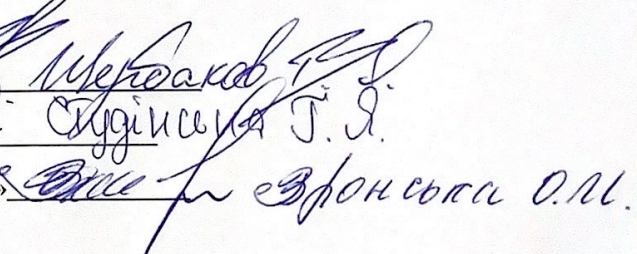 Щербаков
Студінська Г. Я.
Зронська О.М.